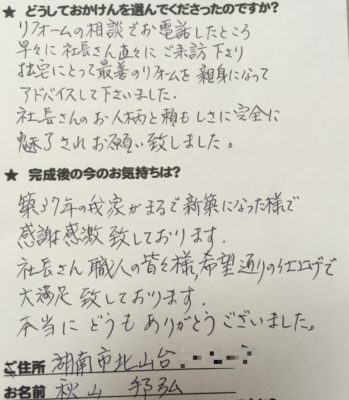 ★ どうしておかけんを選んでくださったのですか?
リフォームの相談でお電話したところ
早々に社長さん直々にご来訪下さり
拙宅にとって最善のリフォームを親身になって
アドバイスして下さいました.
社長さんのお人柄と頼もしさに完全に
魅了されお願い致しました。
★ 完成後の今のお気持ちは?
築37年の我家がまるで新築になった様で
感謝感激致しております.
社長さん職人の皆々様,希望通りの仕上げで
大満足致しております.
本当にどうもありがとうございました。
ご住所 湖南市北山台
お名前 秋山 邦弘